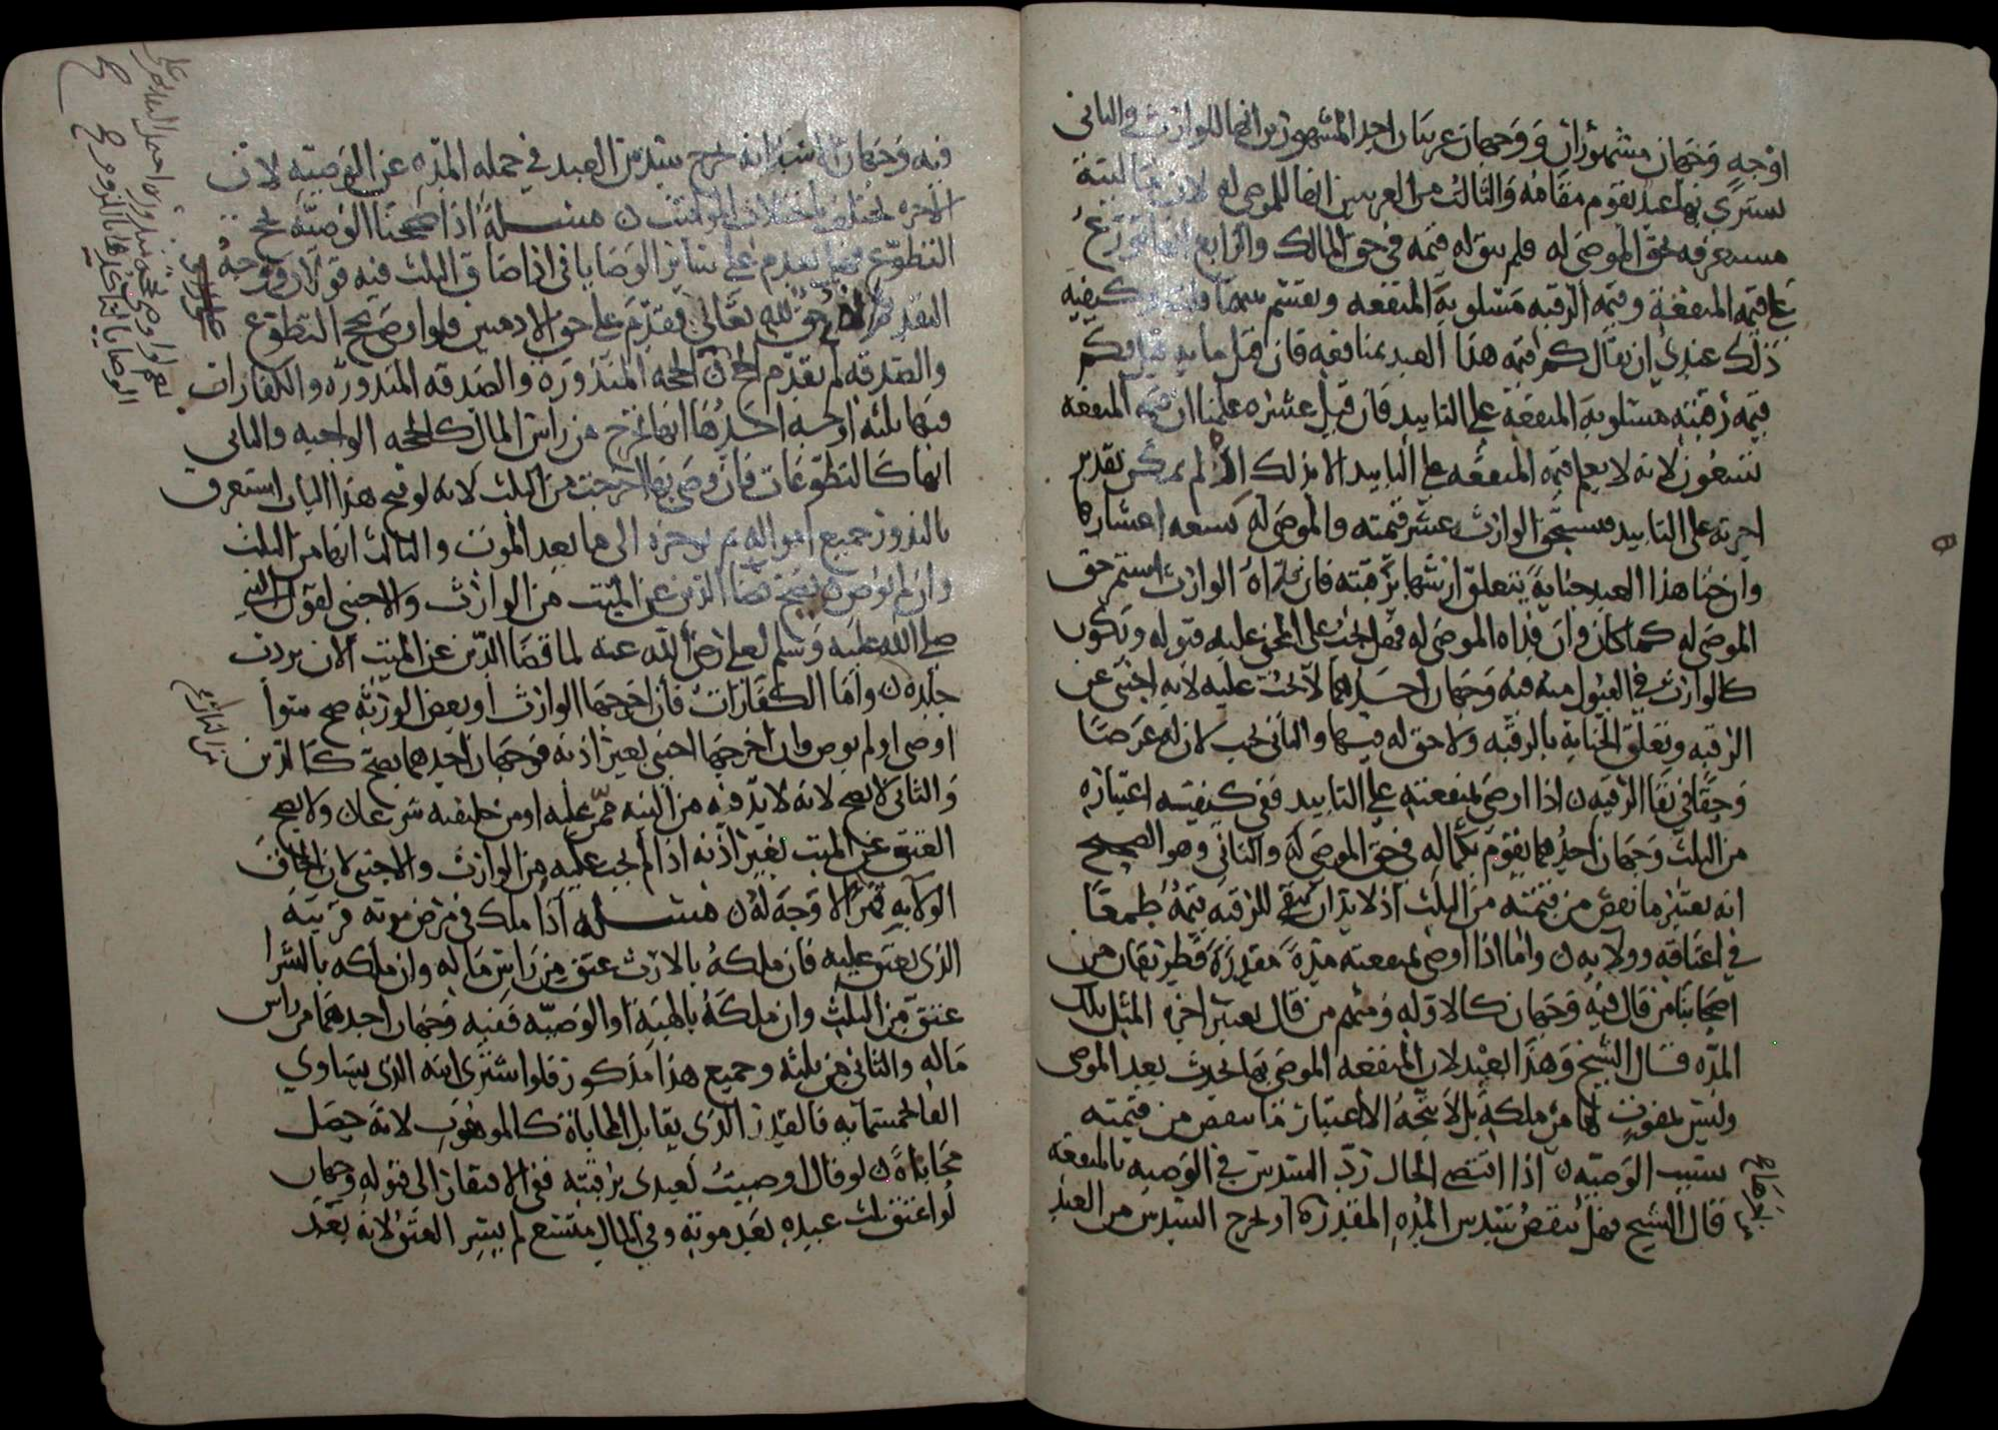 اوجه وجهان مشهوران ووجهان غريبان احد المشهورين انها للوارث والثاني
يشترى بها عبد يقوم مقامه والثالث من الغريبين انها للموصى له لان ماليته
مستغرقه بحق الموصى له فلم يبق له قيمه في حق المالك والرابع انها توزع
على قيمه المنفعة وقيمه الرقبه مسلوبة المنفعه ويقسم بينهما وكيفية
ذلك عندي ان يقال كم قيمه هذا العبد بمنافعه فان قيل مايه قيل فكم
قيمه رقبته مسلوبة المنفعة على التابيد فان قيل عشره علمنا ان قيمه المنفعه
تسعون لانه لا يعلم قيمه المنفعه على التابيد الا بذلك اذ لم يمكن تقدير
اجرته على التابيد فيستحق الوارث عشر قيمته والموصى له تسعه اعشارها
وان جنا هذا العبد جناية يتعلق ارشها برقبته فان فداه الوارث استمر حق
الموصى له كما كان وان فداه الموصى له فهل يجب على المجني عليه قبوله ويكون
كالوارث في القبول منه فيه وجهان احدهما لا يجب عليه لانه اجنبي عن
الرقبه وتعلق الجناية بالرقبه ولا حق له فيها والثاني يجب لان له غرضا
وحقا في بقا الرقبه ن اذا اوصى بمنفعته على التابيد ففي كيفيته اعتباره
من الثلث وجهان احدهما يقوم بكماله في حق الموصى له والثاني وهو الصحيح
انه يعتبر ما نقص من قيمته من الثلث اذ لا بد ان يبقى للرقبه قيمة طمعا
في اعتاقه وولايه ن واما اذا اوصى بمنفعته مدة مقدرة فطريقان من
اصحابنا من قال فيه وجهان كالاوله ومنهم من قال يعتبر اجره المثل تلك
المده قال الشيخ وهذا بعيد لان المنفعه الموصى بها تحدث بعد الموصي
وليس بمفوت لها من ملكه بل لا يتجه الا اعتبار ما ينقص من قيمته
بسبب الوصيه ن اذا اقتضى الحال رد السدس في الوصيه بالمنفعه
قال الشيخ فهل ينقص سدس المده المقدره او يخرج السدس من العبد
فيه وجهان انه يخرج سدس العبد في جمله المده عن الوصيه لان
الاجره تختلف باختلاف المواقيت ن مسله اذا صححنا الوصيه بحج
التطوع فهل يقدم على سائر الوصايا في اذا ضاق الثلث فيه قولان ووجه
التقديم انه حق لله تعالى فيقدم على حق الادميين فلو اوصى بحج التطوع
والصدقه لم يقدم الحج ن الحجه المنذورة والصدقه المنذوره والكفارات
فيها ثلثه اوجه احدها انها تخرج من راس المال كالحجه الواجبه والثاني
انها كالتطوعات فان وصى بها اخرجت من الثلث لانه لو فتح هذا الباب استغرق
بالنذور جميع امواله ثم يوخره الى ما بعد الموت والثالث انها من الثلث
وان لم يوص ن يصح قضا الدين عن الميت من الوارث والاجنبي لقول النبي
صلى الله عليه وسلم لعلي رضي الله عنه لما قضا الدين عن الميت الان بردت
جلده ن واما الكفارات فان اخرجها الوارث او بعض الورثه صح سوا
اوصى او لم يوص وان اخرجها اجنبي بغير اذنه فوجهان احدهما يصح كالدين
والثاني لا يصح لانه لا بد فيه من النيه ممن عليه او من خليفته شرعا ن ولا يصح
العتق عن الميت بغير اذنه اذا لم يجب عليه من الوارث والاجنبي لان الحاق
الولا به قهرا لا وجه له ن مسله اذا ملك في مرض موته قريبه
الذي يعتق عليه فان ملكه بالارث عتق من راس ماله وان ملكه بالشرا
عتق من الثلث وان ملكه بالهبة او الوصيه ففيه وجهان احدهما من راس
ماله والثاني من ثلثه وجميع هذا مذكور فلو اشترى ابنه الذي يساوي
الفا بخمسمايه فالقدر الذي يقابل المحاباة كالموهوب لانه حصل
محاباة ن لو قال اوصيت لعبدي برقبته ففي الافتقار الى قبوله وجهان
لو اعتق ثلث عبده بعد موته وفي المال متسع لم يسر العتق لانه بعد